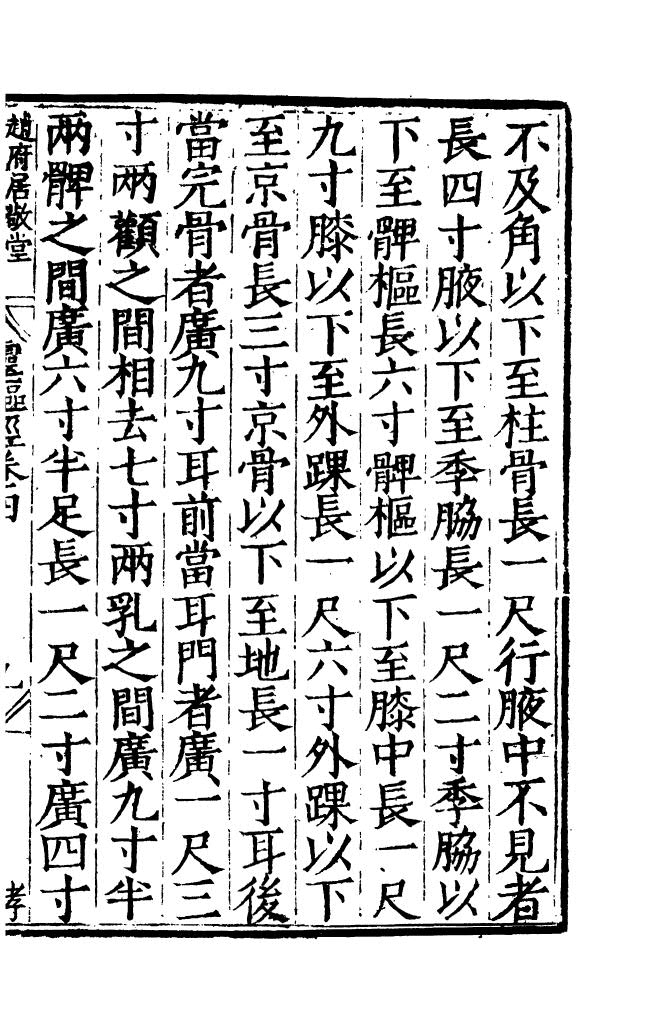 不及角以下至柱骨長一尺行腋中不見者
長四寸腋以下至季脇長一尺二寸季脇以
下至髀樞長六寸髀樞以下至膝中長一尺
九寸膝以下至外踝長一尺六寸外踝以下
至京骨長三寸京骨以下至地長一寸耳後
當完骨者廣九寸耳前當耳門者廣一尺三
寸兩顴之間相去七寸兩乳之間廣九寸半
兩髀之間廣六寸半足長一尺二寸廣四寸
趙府居敬堂
靈樞經卷四
孝